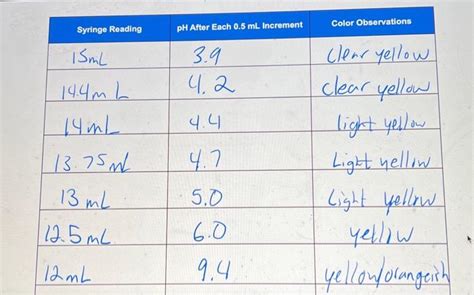 Syringe Reading pH After Each 0.5 mL Increment Color Observations
15mL 3.9 clear yellow
14.4mL 4.2 clear yellow
14mL 4.4 light yellow
13.75mL 4.7 Light yellow
13mL 5.0 Light yellow
12.5mL 6.0 yellow
12mL 9.4 yellow/orangeish